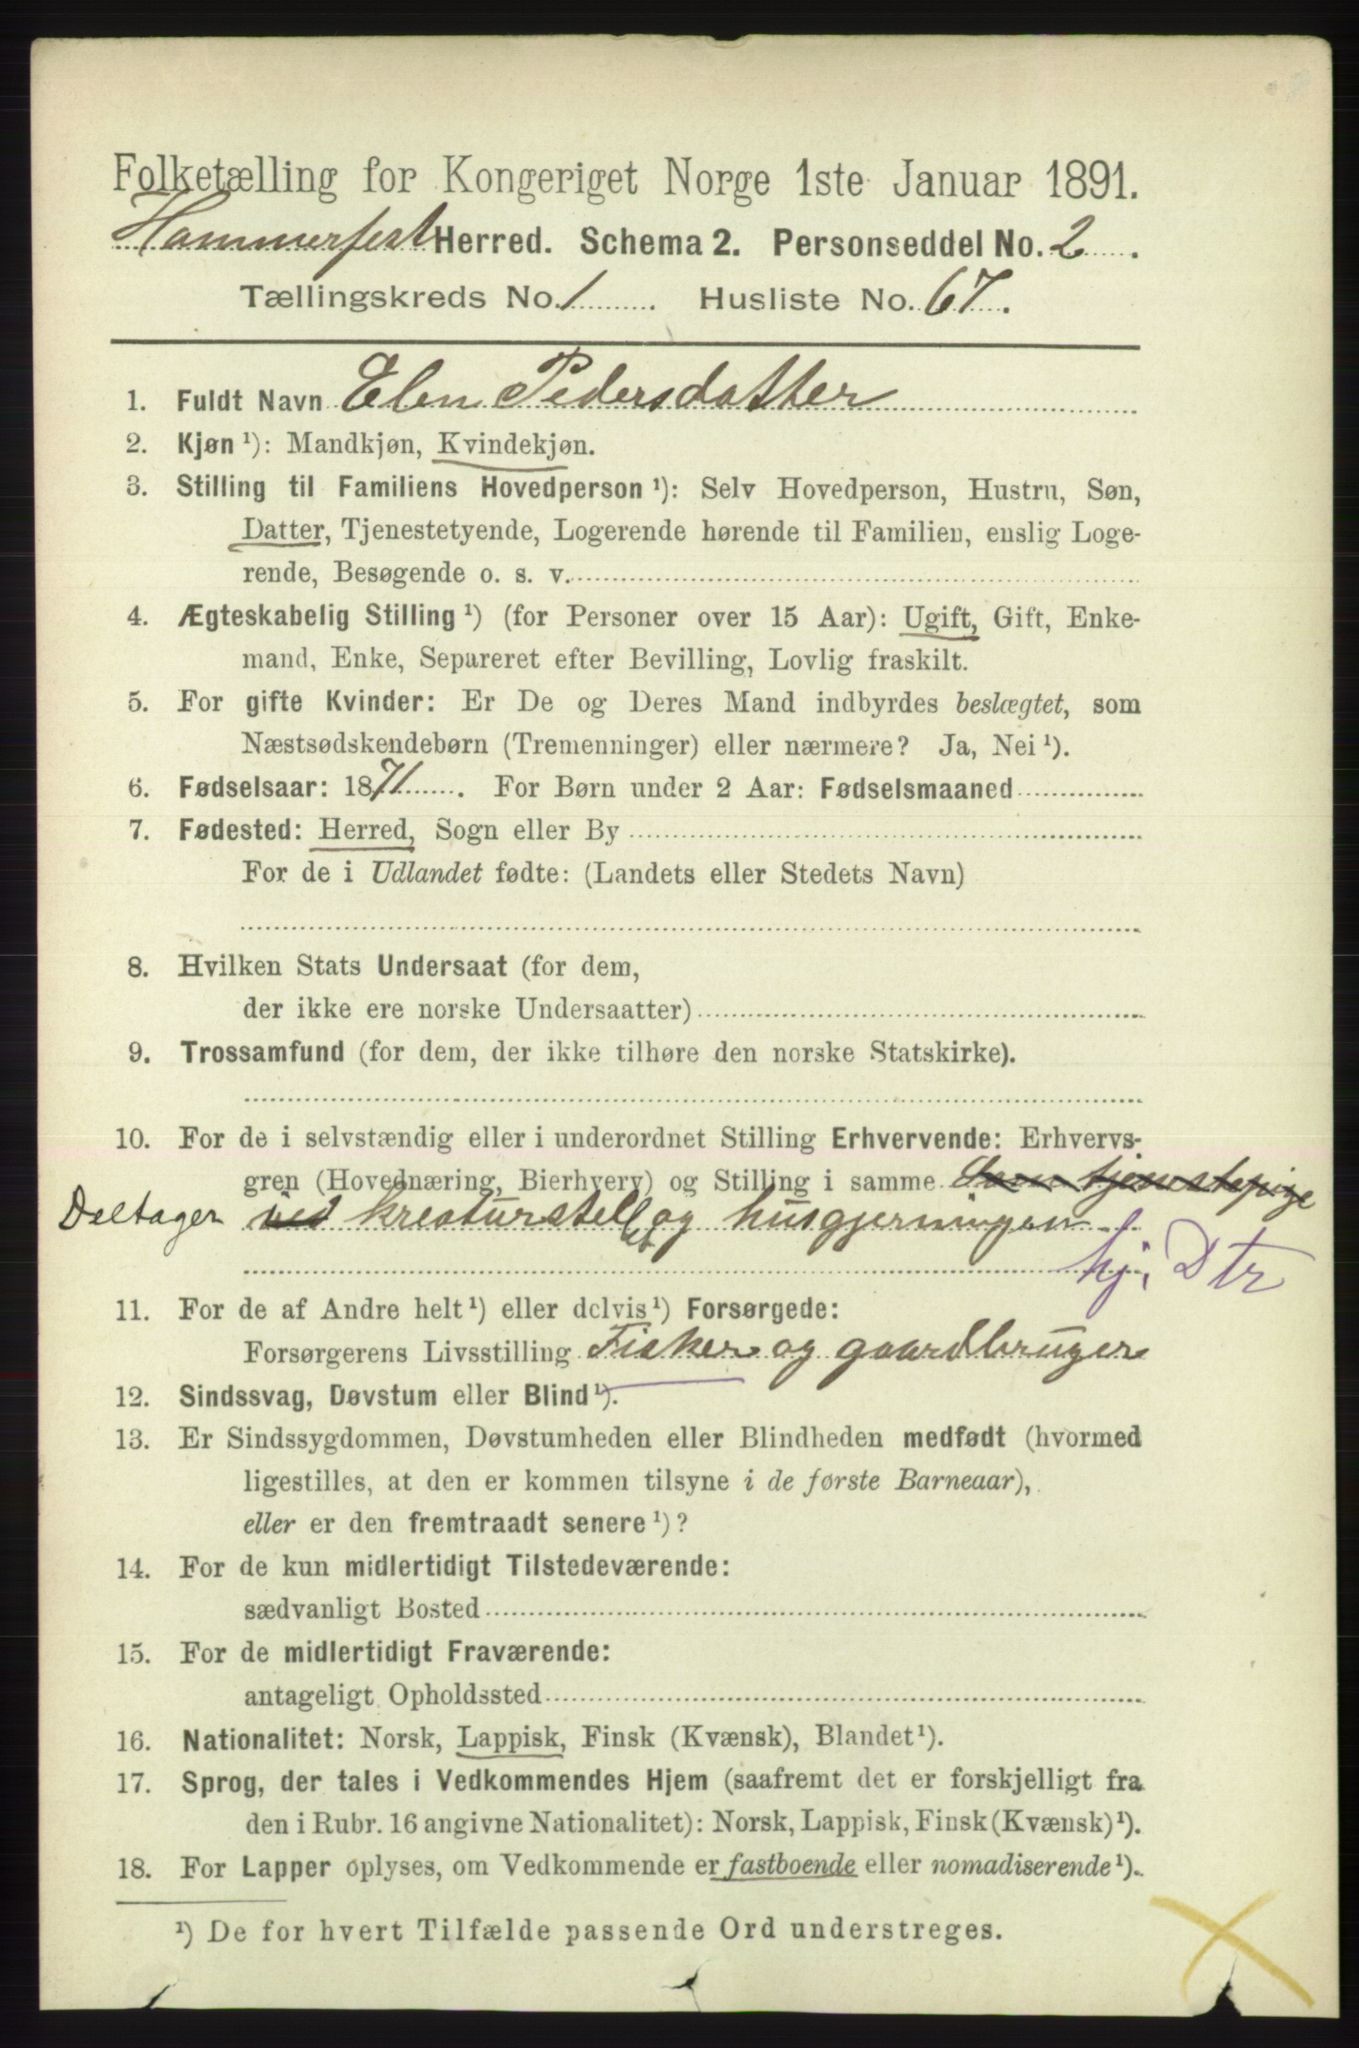 Folketælling for Kongeriget Norge 1ste Januar 1891.
Hammerfest Herred. Schema 2. Personseddel No. 2.
Tællingskreds No. 1. Husliste No. 67.
1. Fuldt Navn Elen Pedersdatter
2. Kjøn ¹): Mandkjøn, Kvindekjøn.
3. Stilling til Familiens Hovedperson ¹): Selv Hovedperson, Hustru, Søn,
Datter, Tjenestetyende, Logerende hørende til Familien, enslig Loge-
rende, Besøgende o. s. v.
4. Ægteskabelig Stilling ¹) (for Personer over 15 Aar): Ugift, Gift, Enke-
mand, Enke, Separeret efter Bevilling, Lovlig fraskilt.
5. For gifte Kvinder: Er De og Deres Mand indbyrdes beslægtet, som
Næstsødskendebørn (Tremenninger) eller nærmere? Ja, Nei ¹).
6. Fødselsaar: 1871. For Børn under 2 Aar: Fødselsmaaned
7. Fødested: Herred, Sogn eller By
For de i Udlandet fødte: (Landets eller Stedets Navn)
8. Hvilken Stats Undersaat (for dem,
der ikke ere norske Undersaatter)
9. Trossamfund (for dem, der ikke tilhøre den norske Statskirke).
10. For de i selvstændig eller i underordnet Stilling Erhvervende: Erhvervs-
gren (Hovednæring, Bierhverv) og Stilling i samme Som tjenestepige
Deltager ved kreaturstell og husgjerningen
hj. Dtr
11. For de af Andre helt ¹) eller delvis ¹) Forsørgede:
Forsørgerens Livsstilling Fisker og gaardbruger
12. Sindssvag, Døvstum eller Blind ¹).
13. Er Sindssygdommen, Døvstumheden eller Blindheden medfødt (hvormed
ligestilles, at den er kommen tilsyne i de første Barneaar),
eller er den fremtraadt senere ¹)?
14. For de kun midlertidigt Tilstedeværende:
sædvanligt Bosted
15. For de midlertidigt Fraværende:
antageligt Opholdssted
16. Nationalitet: Norsk, Lappisk, Finsk (Kvænsk), Blandet ¹).
17. Sprog, der tales i Vedkommendes Hjem (saafremt det er forskjelligt fra
den i Rubr. 16 angivne Nationalitet): Norsk, Lappisk, Finsk (Kvænsk) ¹).
18. For Lapper oplyses, om Vedkommende er fastboende eller nomadiserende ¹).
¹) De for hvert Tilfælde passende Ord understreges.